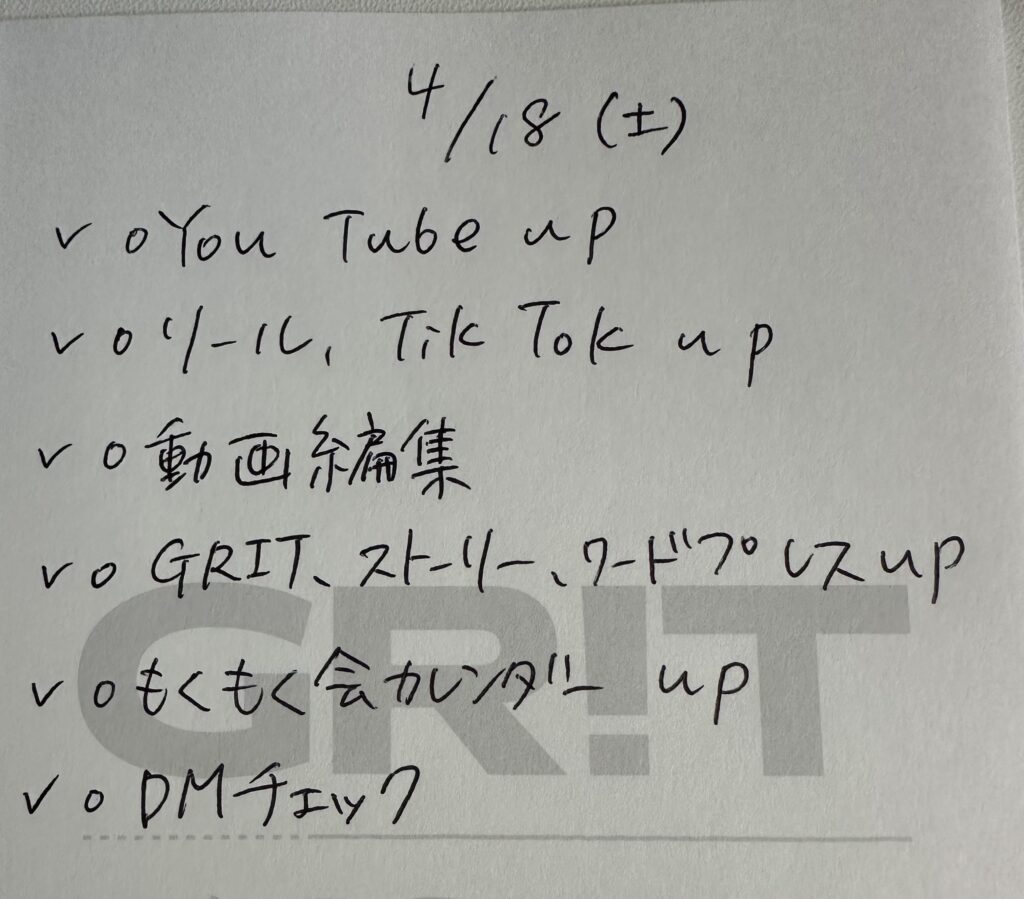 4/18 (土)
✓ ○ You Tube up
✓ ○ リール, Tik Tok up
✓ ○ 動画編集
✓ ○ GRIT、ストーリー、ワードプレスup
GR!T
✓ ○ もくもく会カレンダー up
✓ ○ DMチェック